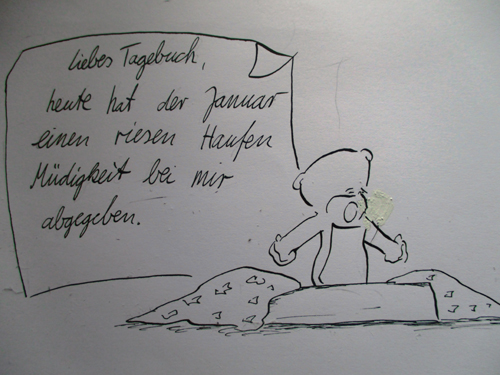 liebes Tagebuch,
heute hat der Januar
einen riesen Haufen
Müdigkeit bei mir
abgegeben.